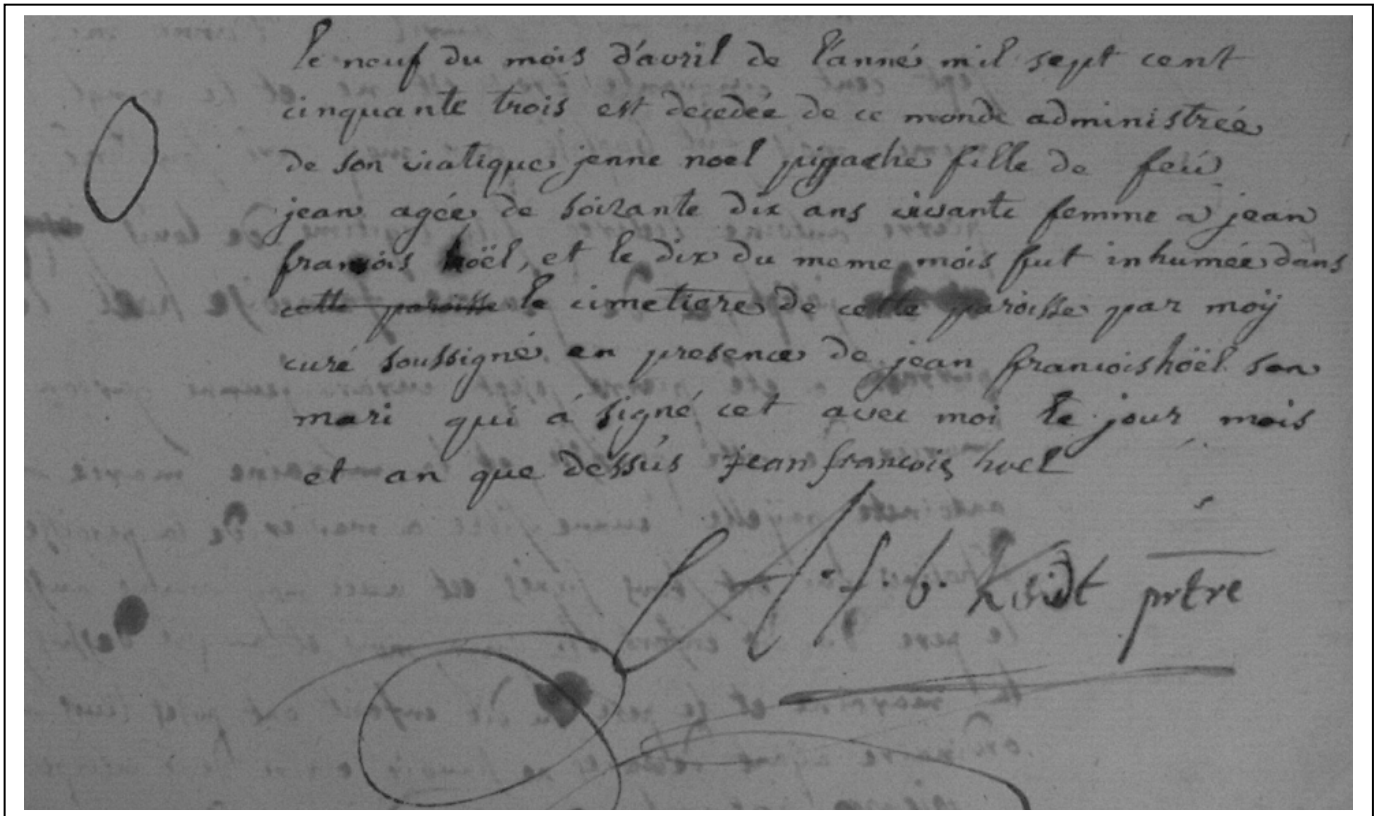 le neuf du mois d'avril de l'année mil sept cent
cinquante trois est decedée de ce monde administrée
de son viatique jenne noel pigache fille de feü
jean agée de soixante dix ans vivante femme a jean
françois höël, et le dix du meme mois fut inhumée dans
cette paroisse le cimetiere de cette paroisse par moÿ
curé soussigné en presence de jean francois höël son
mari qui á signé cet avec moi le jour mois
et an que dessús jean francois hoel
f. b. prtre